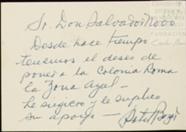 Sr. Don Salvador Novo
Desde hace tiempo
tenemos el deseo de
poner a la Colonia Roma
la Zona Azul -
Le sugiero y le suplico
su apoyo -